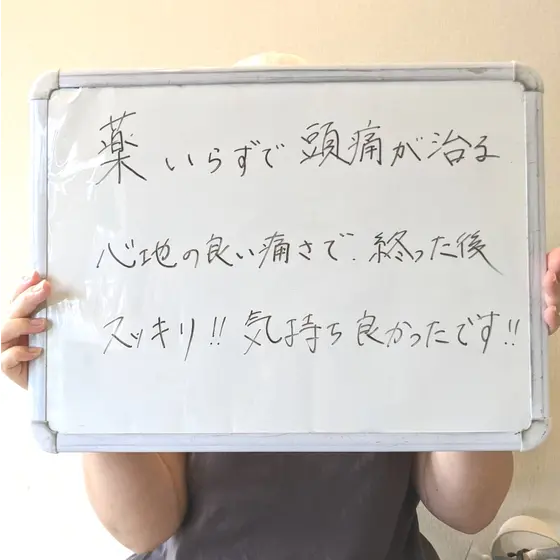 薬いらずで頭痛が治る
心地の良い痛さで.終った後
スッキリ!!気持ち良かったです!!